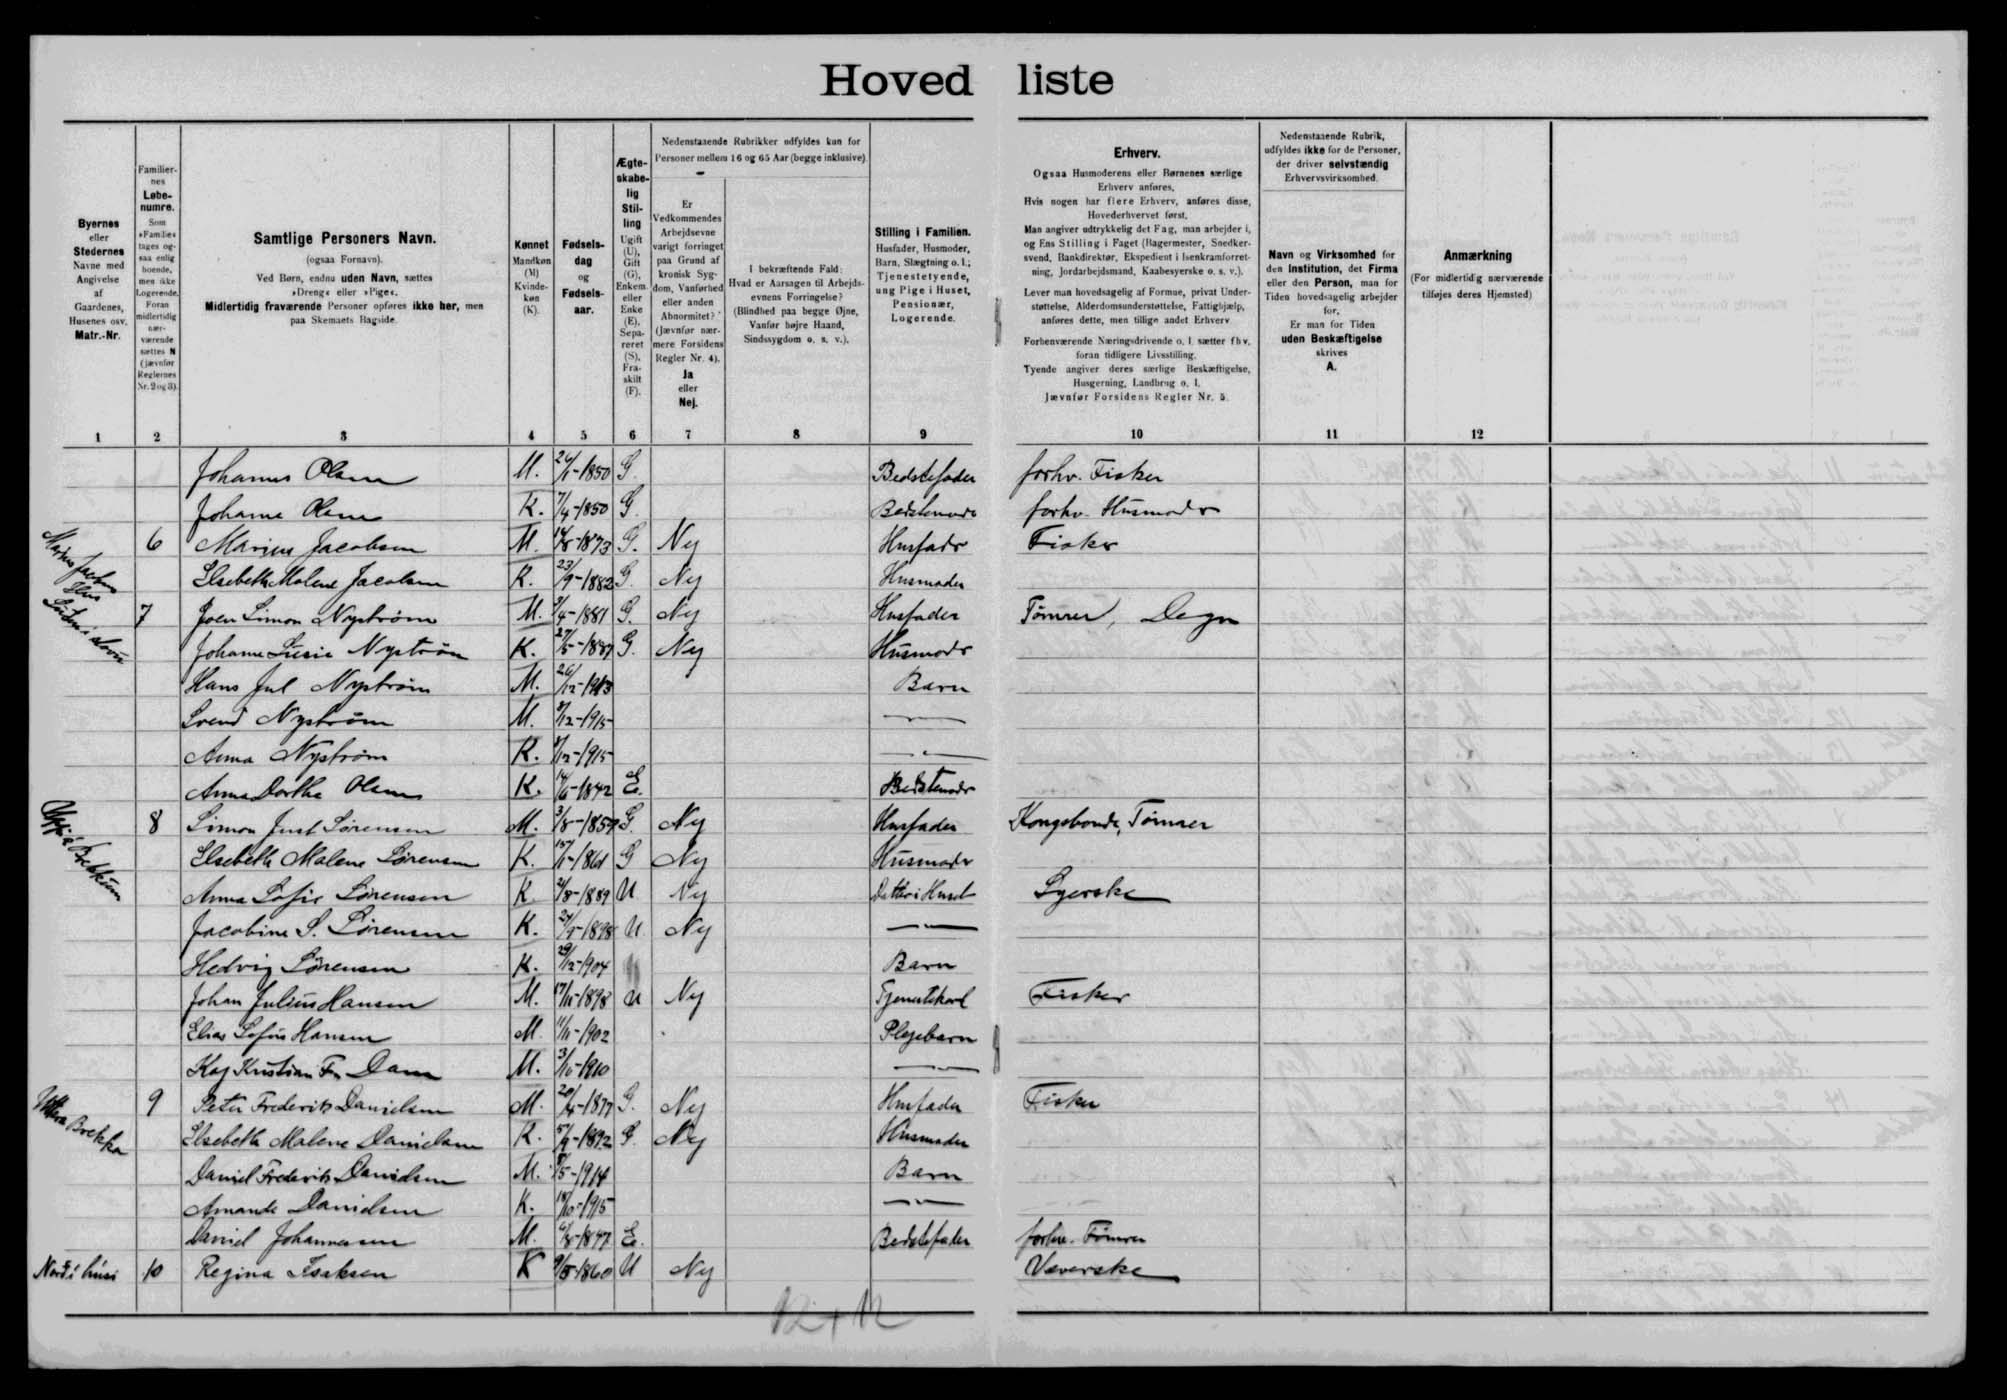 Hoved liste
Byernes
eller
Stedernes
Navne med
Angivelse
af
Gaardenes,
Husenes osv.
Matr.-Nr.
Familier-
nes
Løbe-
numre.
Som
»Familie«
tages og-
saa enlig
boende,
men ikke
Logerende.
Foran
midlertidig
nær-
værende
sættes N
(jævnfør
Reglernes
Nr. 2 og 3).
Samtlige Personers Navn.
(ogsaa Fornavn).
Ved Børn, endnu uden Navn, sættes
»Dreng« eller »Pige«.
Midlertidig fraværende Personer opføres ikke her, men
paa Skemaets Bagside.
Kønnet
Mandkøn
(M)
Kvinde-
køn
(K).
Fødsels-
dag
og
Fødsels-
aar.
Ægte-
skabe-
lig
Stil-
ling
Ugift
(U),
Gift
(G),
Enkem.
eller
Enke
(E),
Sepa-
reret
(S),
Fra-
skilt
(F).
Nedenstaaende Rubrikker udfyldes kun for
Personer mellem 16 og 65 Aar (begge inklusive).
Er
Vedkommendes
Arbejdsevne
varigt forringet
paa Grund af
kronisk Syg-
dom, Vanførhed
eller anden
Abnormitet?
(Jævnfør nær-
mere Forsidens
Regler Nr. 4).
Ja
eller
Nej.
I bekræftende Fald:
Hvad er Aarsagen til Arbejds-
evnens Forringelse?
(Blindhed paa begge Øjne,
Vanfør højre Haand,
Sindssygdom o. s. v.).
Stilling i Familien.
Husfader, Husmoder,
Barn, Slægtning o. l.;
Tjenestetyende,
ung Pige i Huset,
Pensionær,
Logerende.
Erhverv.
Ogsaa Husmoderens eller Børnenes særlige
Erhverv anføres.
Hvis nogen har flere Erhverv, anføres disse,
Hovederhvervet først.
Man angiver udtrykkelig det Fag, man arbejder i,
og Ens Stilling i Faget (Bagermester, Snedker-
svend, Bankdirektør, Ekspedient i Isenkramforret-
ning, Jordarbejdsmand, Kaabesyerske o. s. v.).
Lever man hovedsagelig af Formue, privat Under-
støttelse, Alderdomsunderstøttelse, Fattighjælp,
anføres dette, men tillige andet Erhverv.
Forhenværende Næringsdrivende o. l. sætter fhv.
foran tidligere Livsstilling.
Tyende angiver deres særlige Beskæftigelse,
Husgerning, Landbrug o. l.
Jævnfør Forsidens Regler Nr. 5.
Nedenstaaende Rubrik,
udfyldes ikke for de Personer,
der driver selvstændig
Erhvervsvirksomhed.
Navn og Virksomhed for
den Institution, det Firma
eller den Person, man for
Tiden hovedsagelig arbejder
for.
Er man for Tiden
uden Beskæftigelse
skrives
A.
Anmærkning
(For midlertidig nærværende
tilføjes deres Hjemsted)
1 2 3 4 5 6 7 8 9 10 11 12
Johannes Olsen M. 24/1-1850 G. Bedstefader forhv. Fisker
Johanne Olsen K. 7/4-1850 G. Bedstemoder forhv. Husmoder
Marius Jacobsens Hus 6 Marius Jacobsen M. 1873 G. Nej Husfader Fisker
Elsebeth Malene Jacobsen K. 23/9-1882 G. Nej Husmoder
7 Joen Simon Nystrøm M. 1881 G. Nej Husfader Tømrer, Degn
Johanne Susie Nystrøm K. 27/5-1887 G. Nej Husmoder
Hans Jul Nystrøm M. 26/12-1913 Barn
Svend Nystrøm M. 8/12-1915
Anna Nystrøm K. 8/12-1915
Anna Dorthe Olsen K. 1842 E. Bedstemoder
8 Simon Just Sørensen M. 3/8-1857 G. Nej Husfader Kongsbonde, Tømrer
Elsebeth Malene Sørensen K. 1861 G Nej Husmoder
Anna Sofie Sørensen K. 1889 U Nej Datter i Huset Syerske
Jacobine S. Sørensen K. 1898 U. Nej
Hedvig Sørensen K. 29/12-1904 Barn
Johan Julius Hansen M. 1898 U Nej Tjenestekarl Fisker
Elias Sofus Hansen M. 11/11-1902 Plejebarn
Kaj Kristian Fr. Dam M. 3/10-1910
Brekka 9 Peter Frederik Danielsen M. 1877 G. Nej Husfader Fisker
Elsebeth Malene Danielsen K. 1892 G. Nej Husmoder
Daniel Frederik Danielsen M. 1914 Barn
Amanda Danielsen K. 18/10-1915
Daniel Johannesen M. 1847 E. Bedstefader forhv. Tømrer
Norð í húsi 10 Regina Isaksen K 9/5-1860 U Nej Væverske
12 + 12